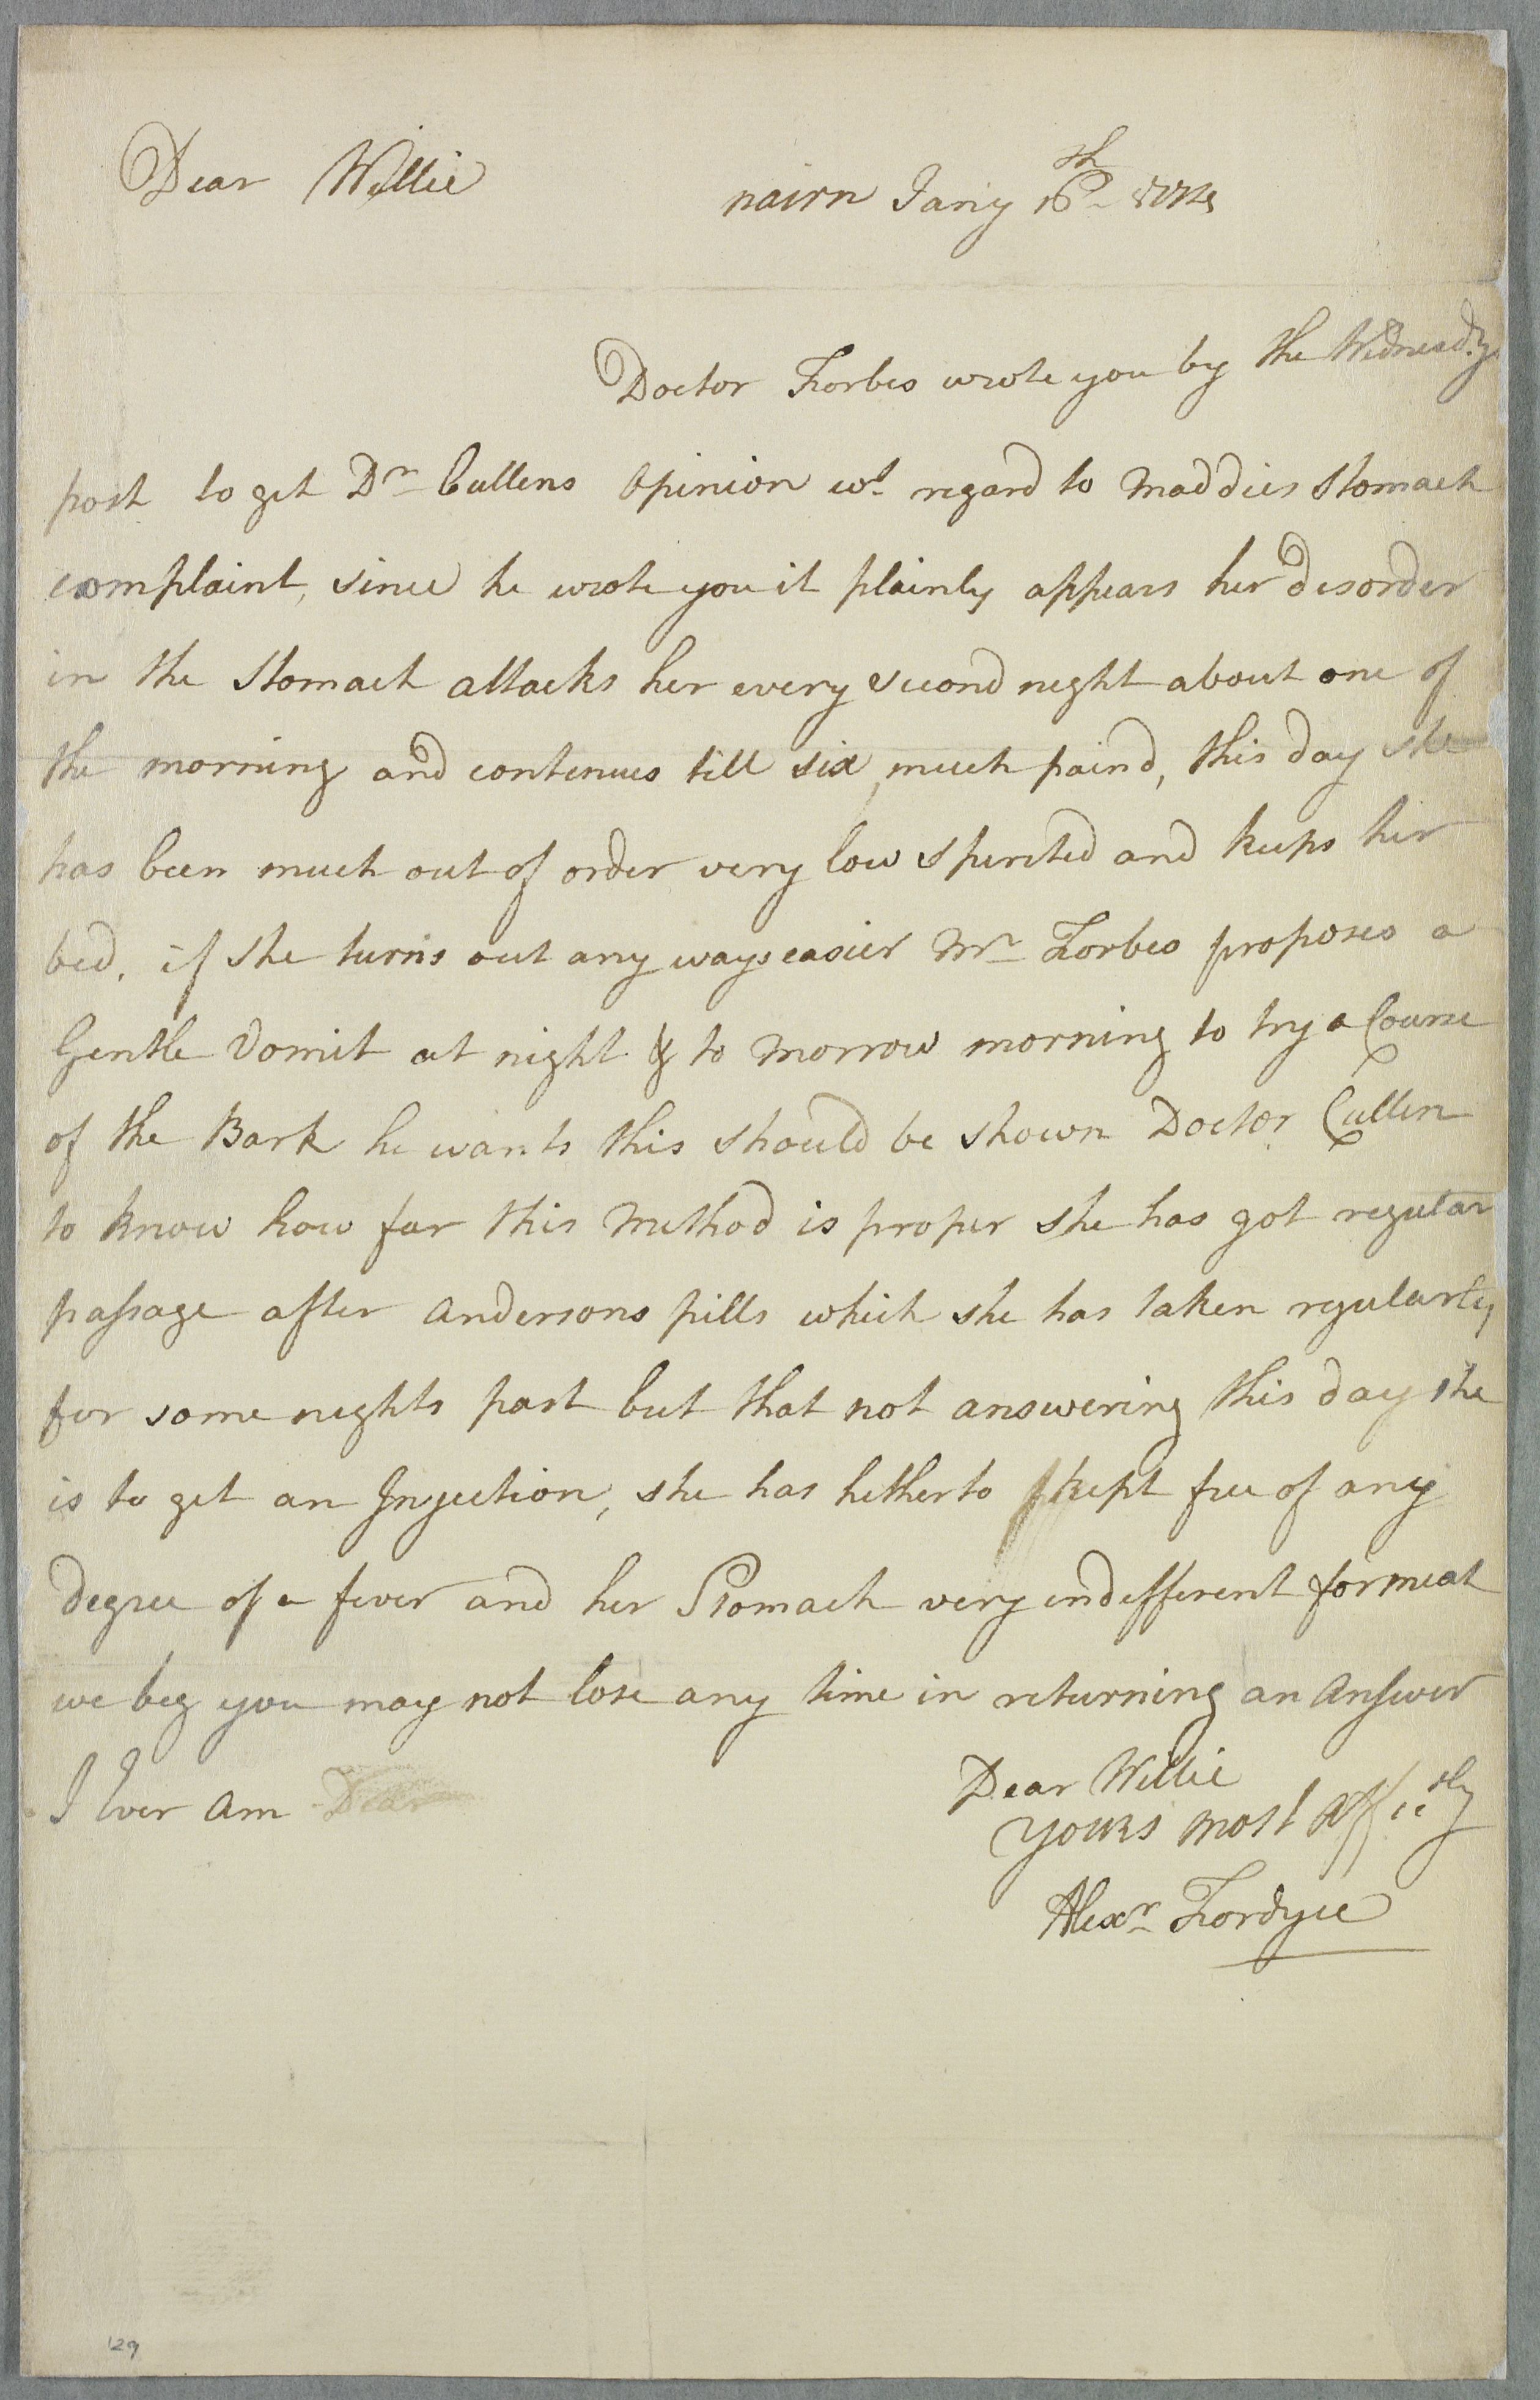 Dear Willie
nairn Jany 16th 1774
Doctor Forbes wrote you by the Wednesdys
post to get Dr Cullens Opinion wt regard to Maddies Stomach
complaint, since he wrote you it plainly appears her desorder
in the Stomach attacks her every second night about one of
the morning and contenues till six, much paind, this day she
has been much out of order very low spireted and keeps her
bed, if she turns out any ways easier Mr Forbes proposes a
Gentle Vomit at night & to morrow morning to try a Course
of the Bark he wants this should be shown Doctor Cullen
to know how far this Method is proper she has got regular
passage after Andersons pills which she has taken regularly
for some nights past but that not answering this day she
is to get an Injection, she has hetherto kept free of any
degree of a fever and her Stomach very indefferent for meat
we beg you may not lose any time in returning an Answer
I Ever Am Dear
Dear Willie
yours most Affectly
Alexr Fordyce
129